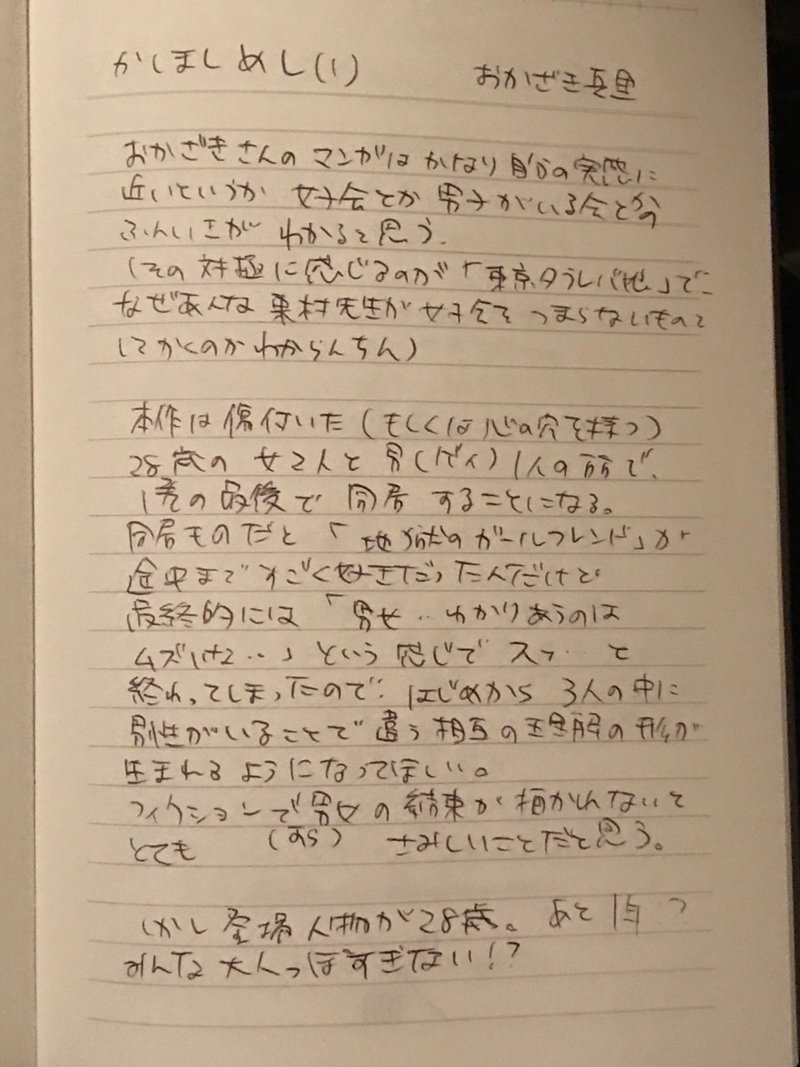 かしましめし(1) おかざき真里
おかざきさんの マンガは かなり 自分の実感に
近いというか 女子会とか 男子がいる会とかの
ふんいきが わかると思う。
(その 対極に感じるのが「東京タラレバ娘」で
なぜあんな 東村先生が 女子会を つまらないものと
してかくのか わからんちん)
本作は 傷付いた (もしくは 心の穴を持つ)
28歳の 女2人と 男(ゲイ)1人の話で、
1巻の最後で 同居 することになる。
同居ものだと 「地獄のガールフレンド」が
途中まで すごく好きだったんだけど
最終的には 「男女‥わかりあうのは
ムズいけど‥」という 感じで スッ‥と
終わってしまったので はじめから 3人の中に
男性がいることで 違う 相互の理解の形が
生まれるようになってほしい。
フィクションで男女の結束が描かれないと
とても さみしいことだと思う。
しかし 登場人物が28歳。 あと ?
みんな 大人っぽすぎない!?